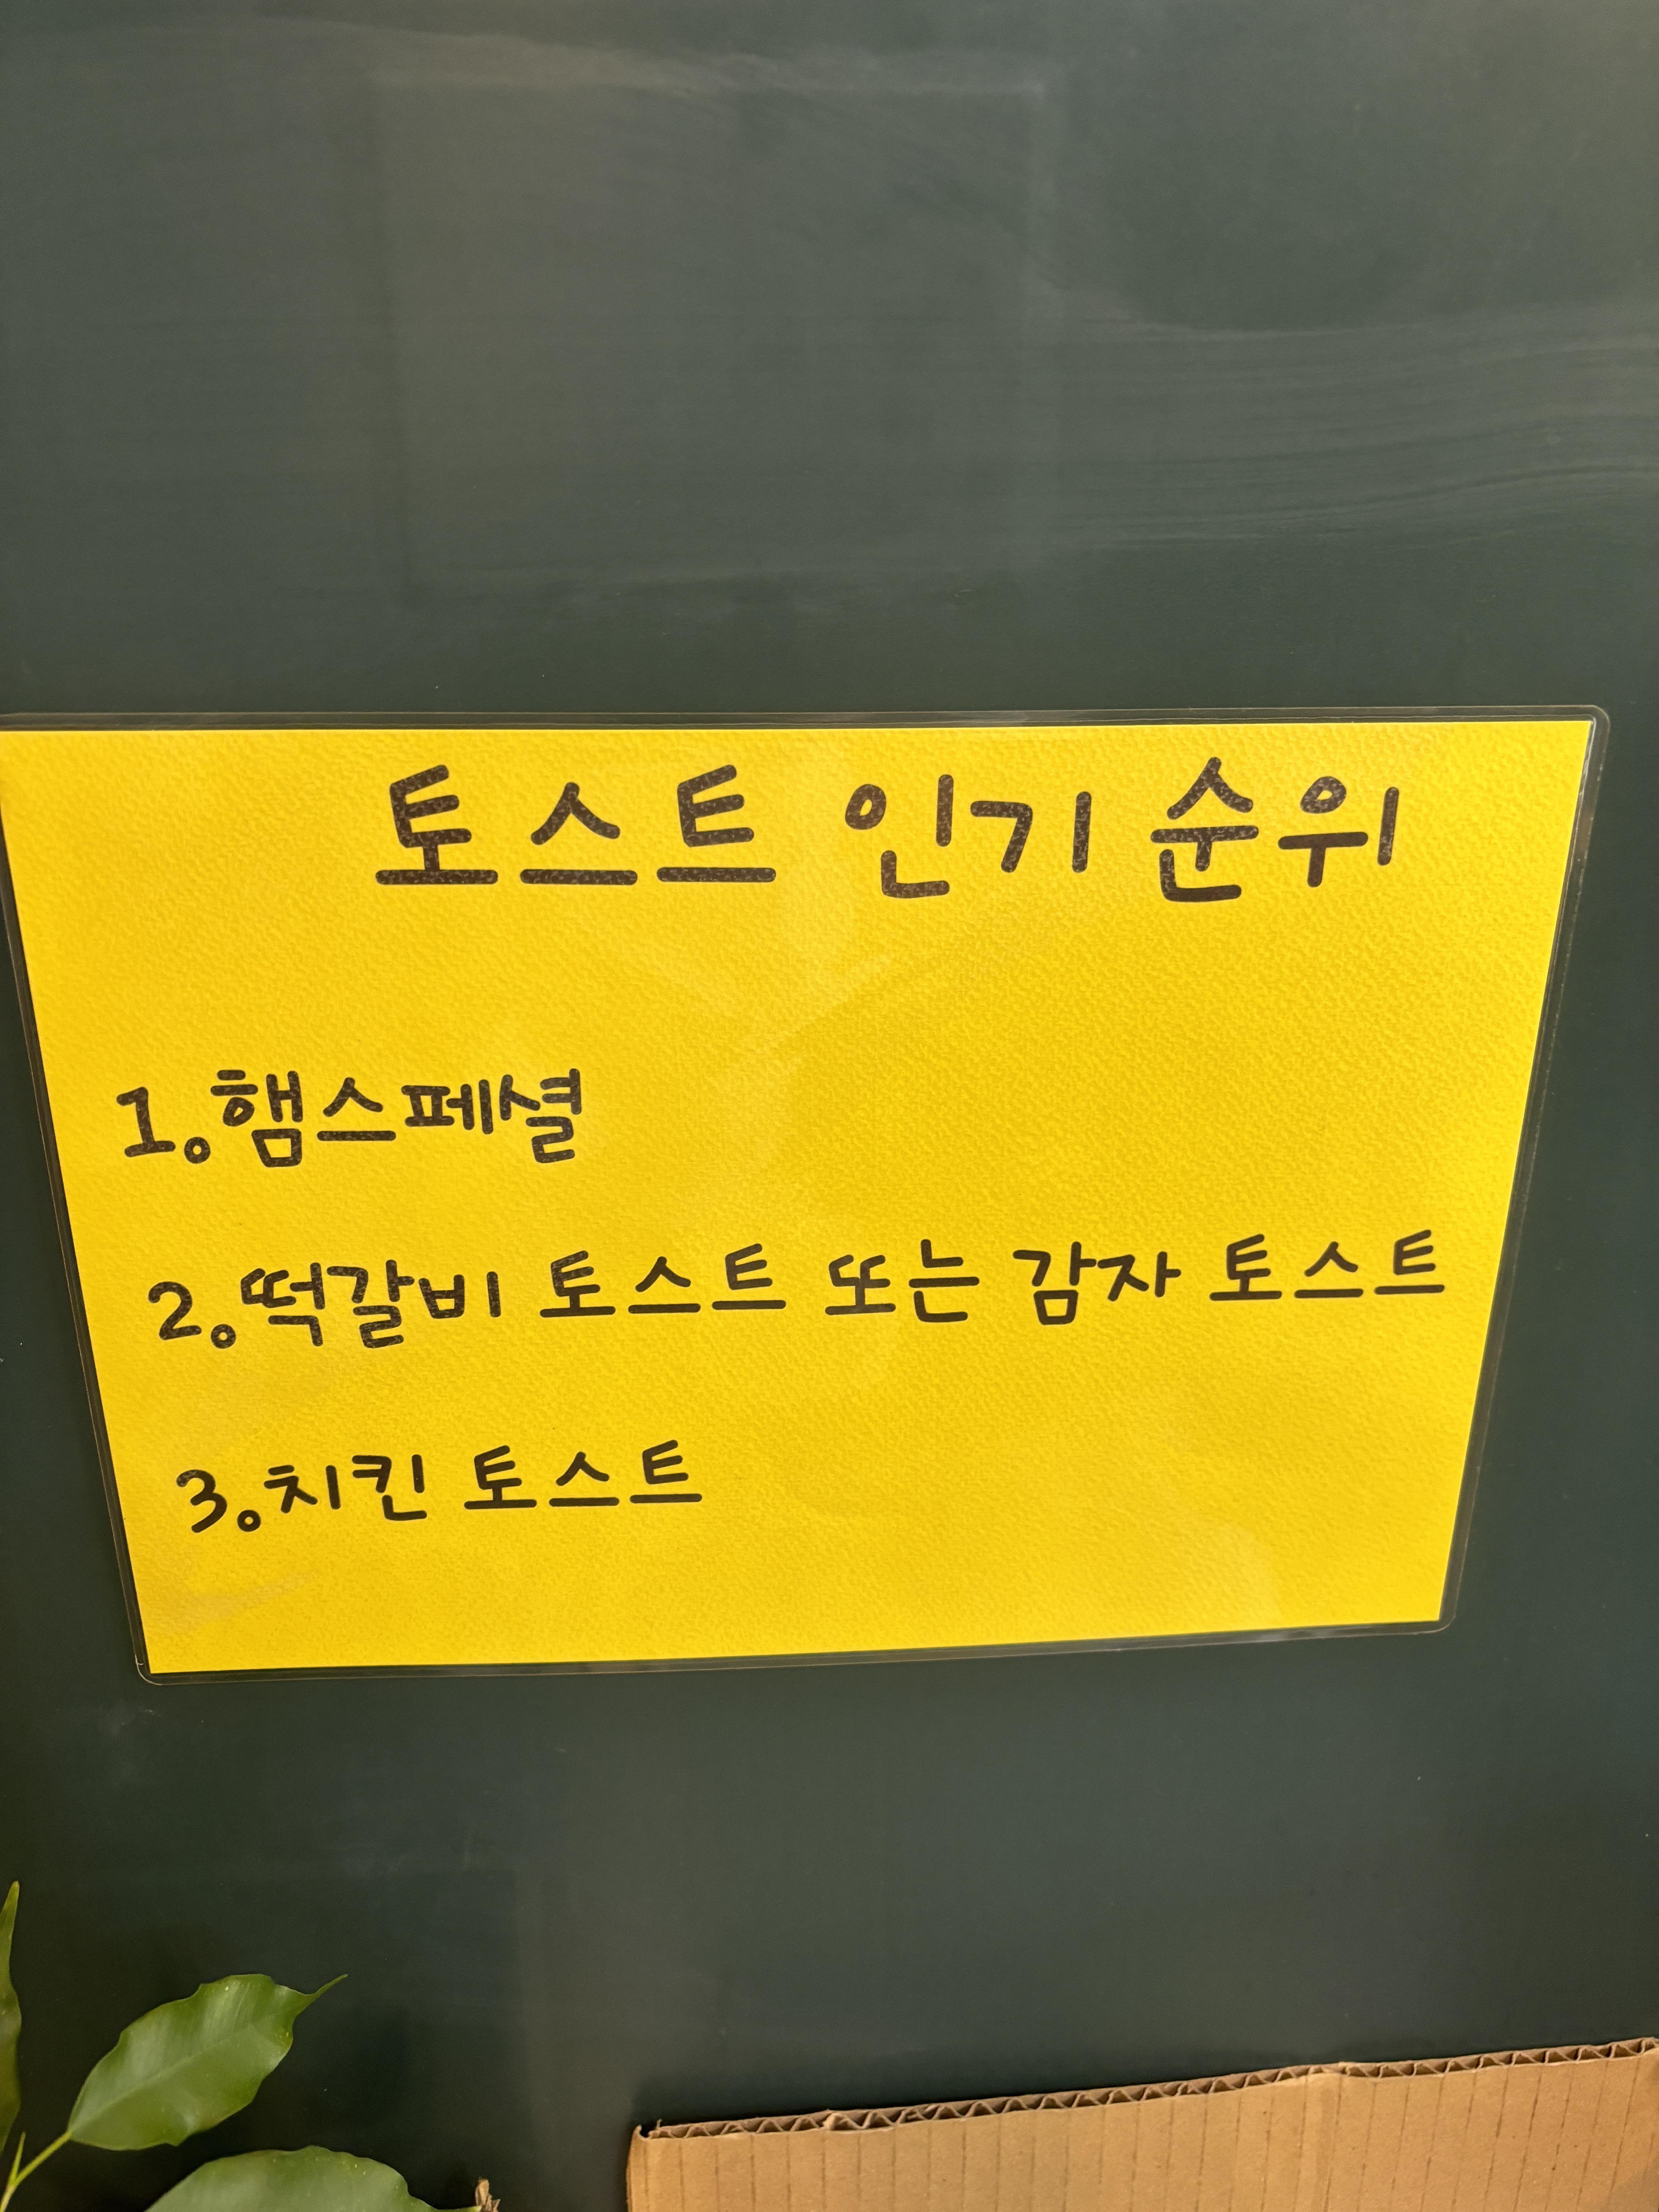 토스트 인기 순위
1. 햄스페셜
2. 떡갈비 토스트 또는 감자 토스트
3. 치킨 토스트